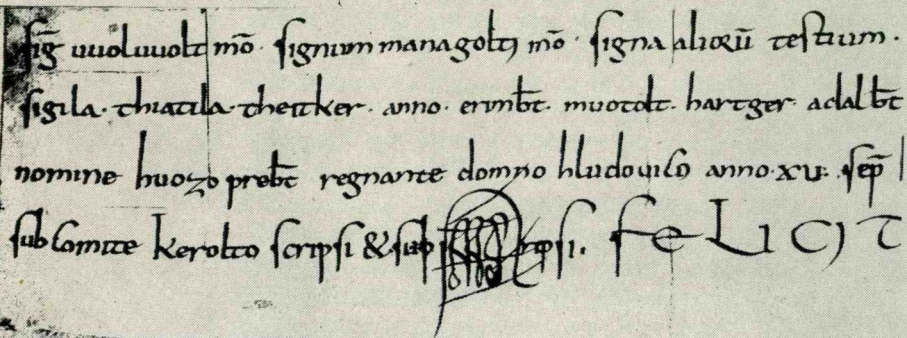 sig̅ uuoluuolt mo̅ · signum managolti mo̅ · signa aliorū testium ·
sigila · thiatila · theitker · anno · erimb̅t · muotolt · hartger · adalb̅t
nomine huozo preb̅t regnante domno hludouico anno · xv · sep̅
sub comite kerolto scripsi & sub psi · FELICIT